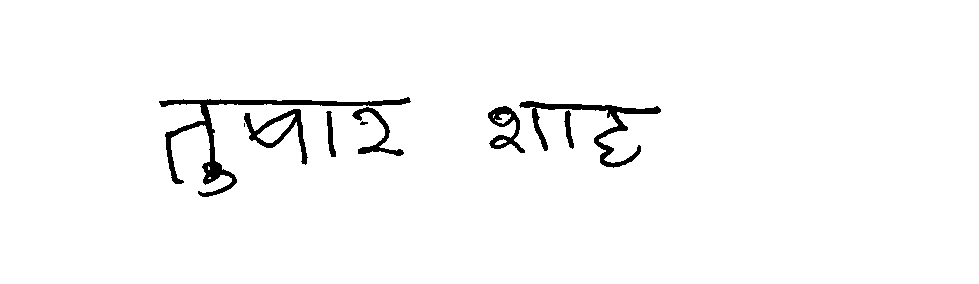 तुषार शाह